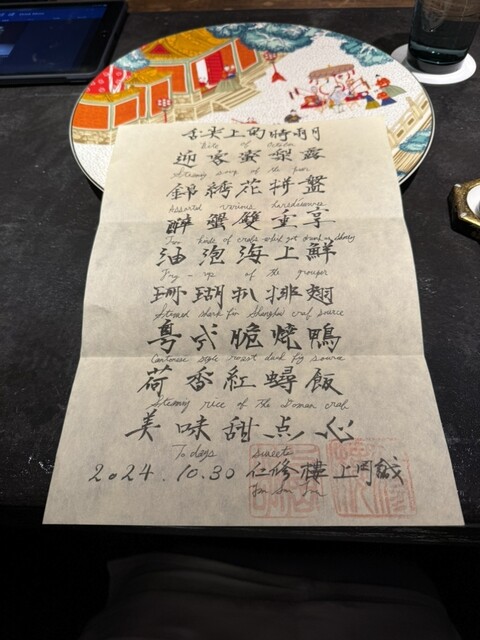 舌尖上的時明月
Bite of October
迎客蜜梨露
Steamy soup of the pear
錦綉花拼盤
Assorted various horsdoeuvre
醉蟹雙重享
Two kinds of crabs which got drunk on sherry
油泡海上鮮
Fry-up of the grouper
珊瑚扒排翅
Stewed shark fin Shanghai crab source
粵式脆燒鴨
Cantonese style roast duck fig source
荷香紅蟳飯
Steamy rice of The Roman crab
美味甜点心
Todays sweets
2024.10.30 仁修樓 上岡誠